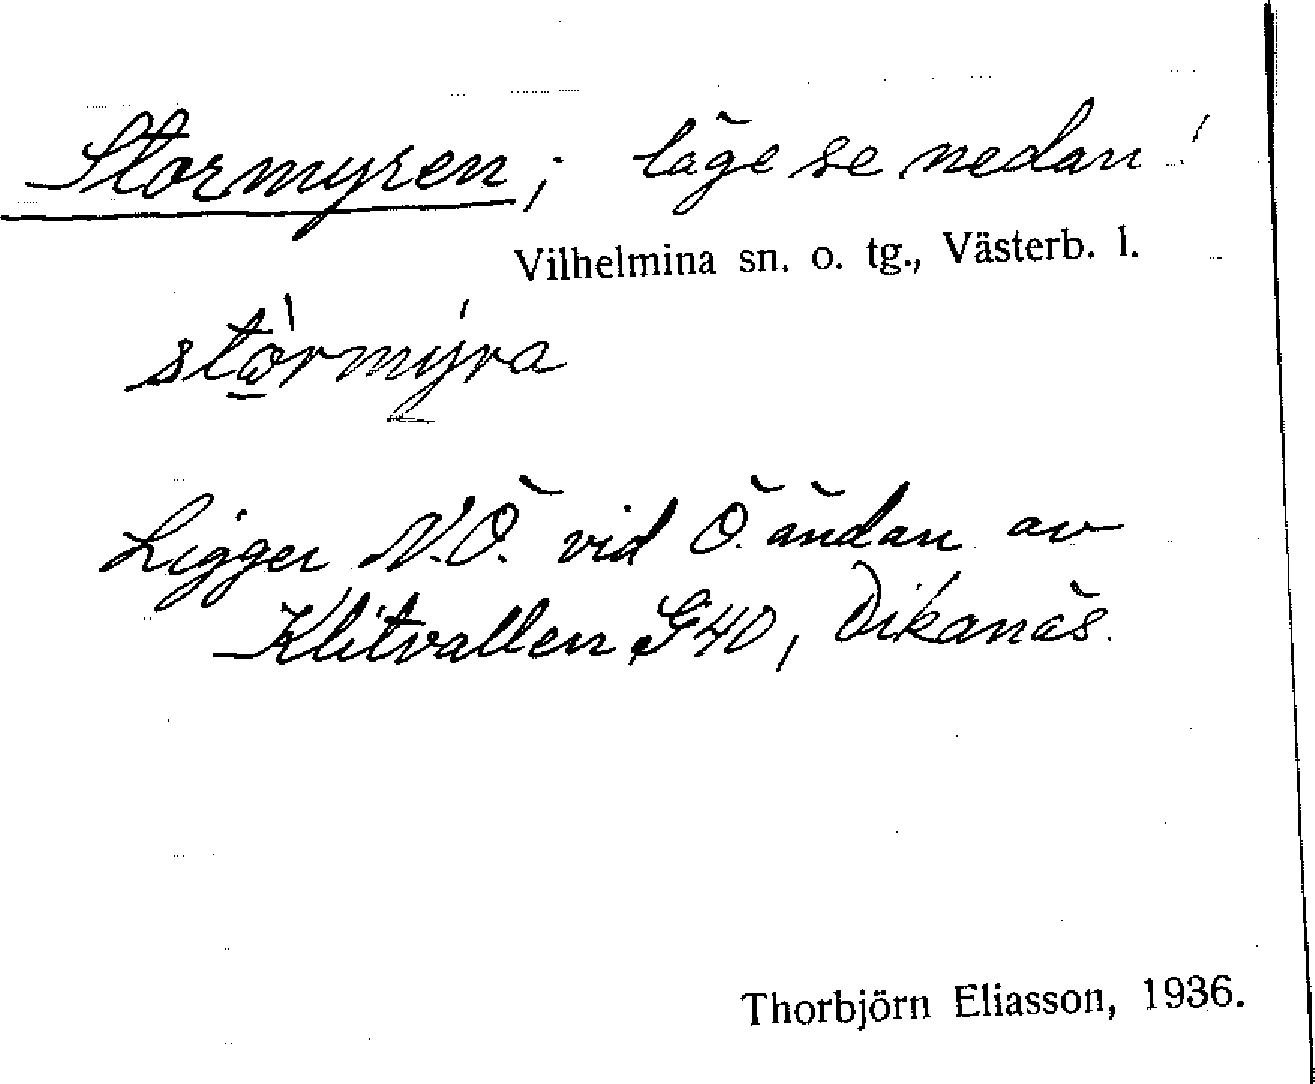 Stormyren; läge se nedan!
Vilhelmina sn. o. tg., Västerb. l.
stòrmýra
Ligger N.Ö. vid Ö. ändan av
Klitvallen G40, Dikanäs.
Thorbjörn Eliasson, 1936.